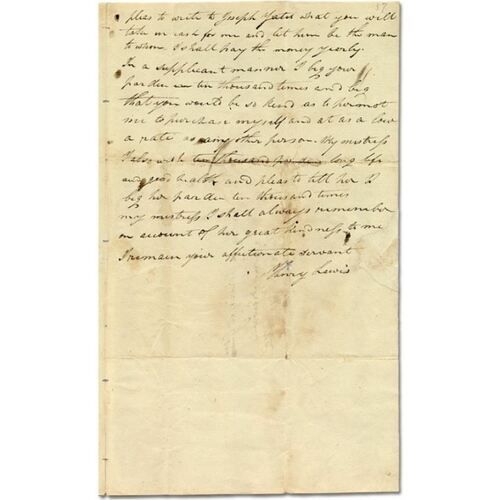 pleas to write to Joseph Yates what you will
take in cash for me and let him be the man
to whom I shall pay the money yearly.
In a supplicant manner I beg your
parden ten thousand times and beg
that you would be so kind as to permot
me to purchase myself and at as a low
a rate as any other person. My mistress
Yates wish ten thousand pardens long life
and good health and pleas to tell her I
beg her parden ten thousand times
my mistress I shall always remember
on account of her great kindness to me
I remain your affectionate servant
Henry Lewis